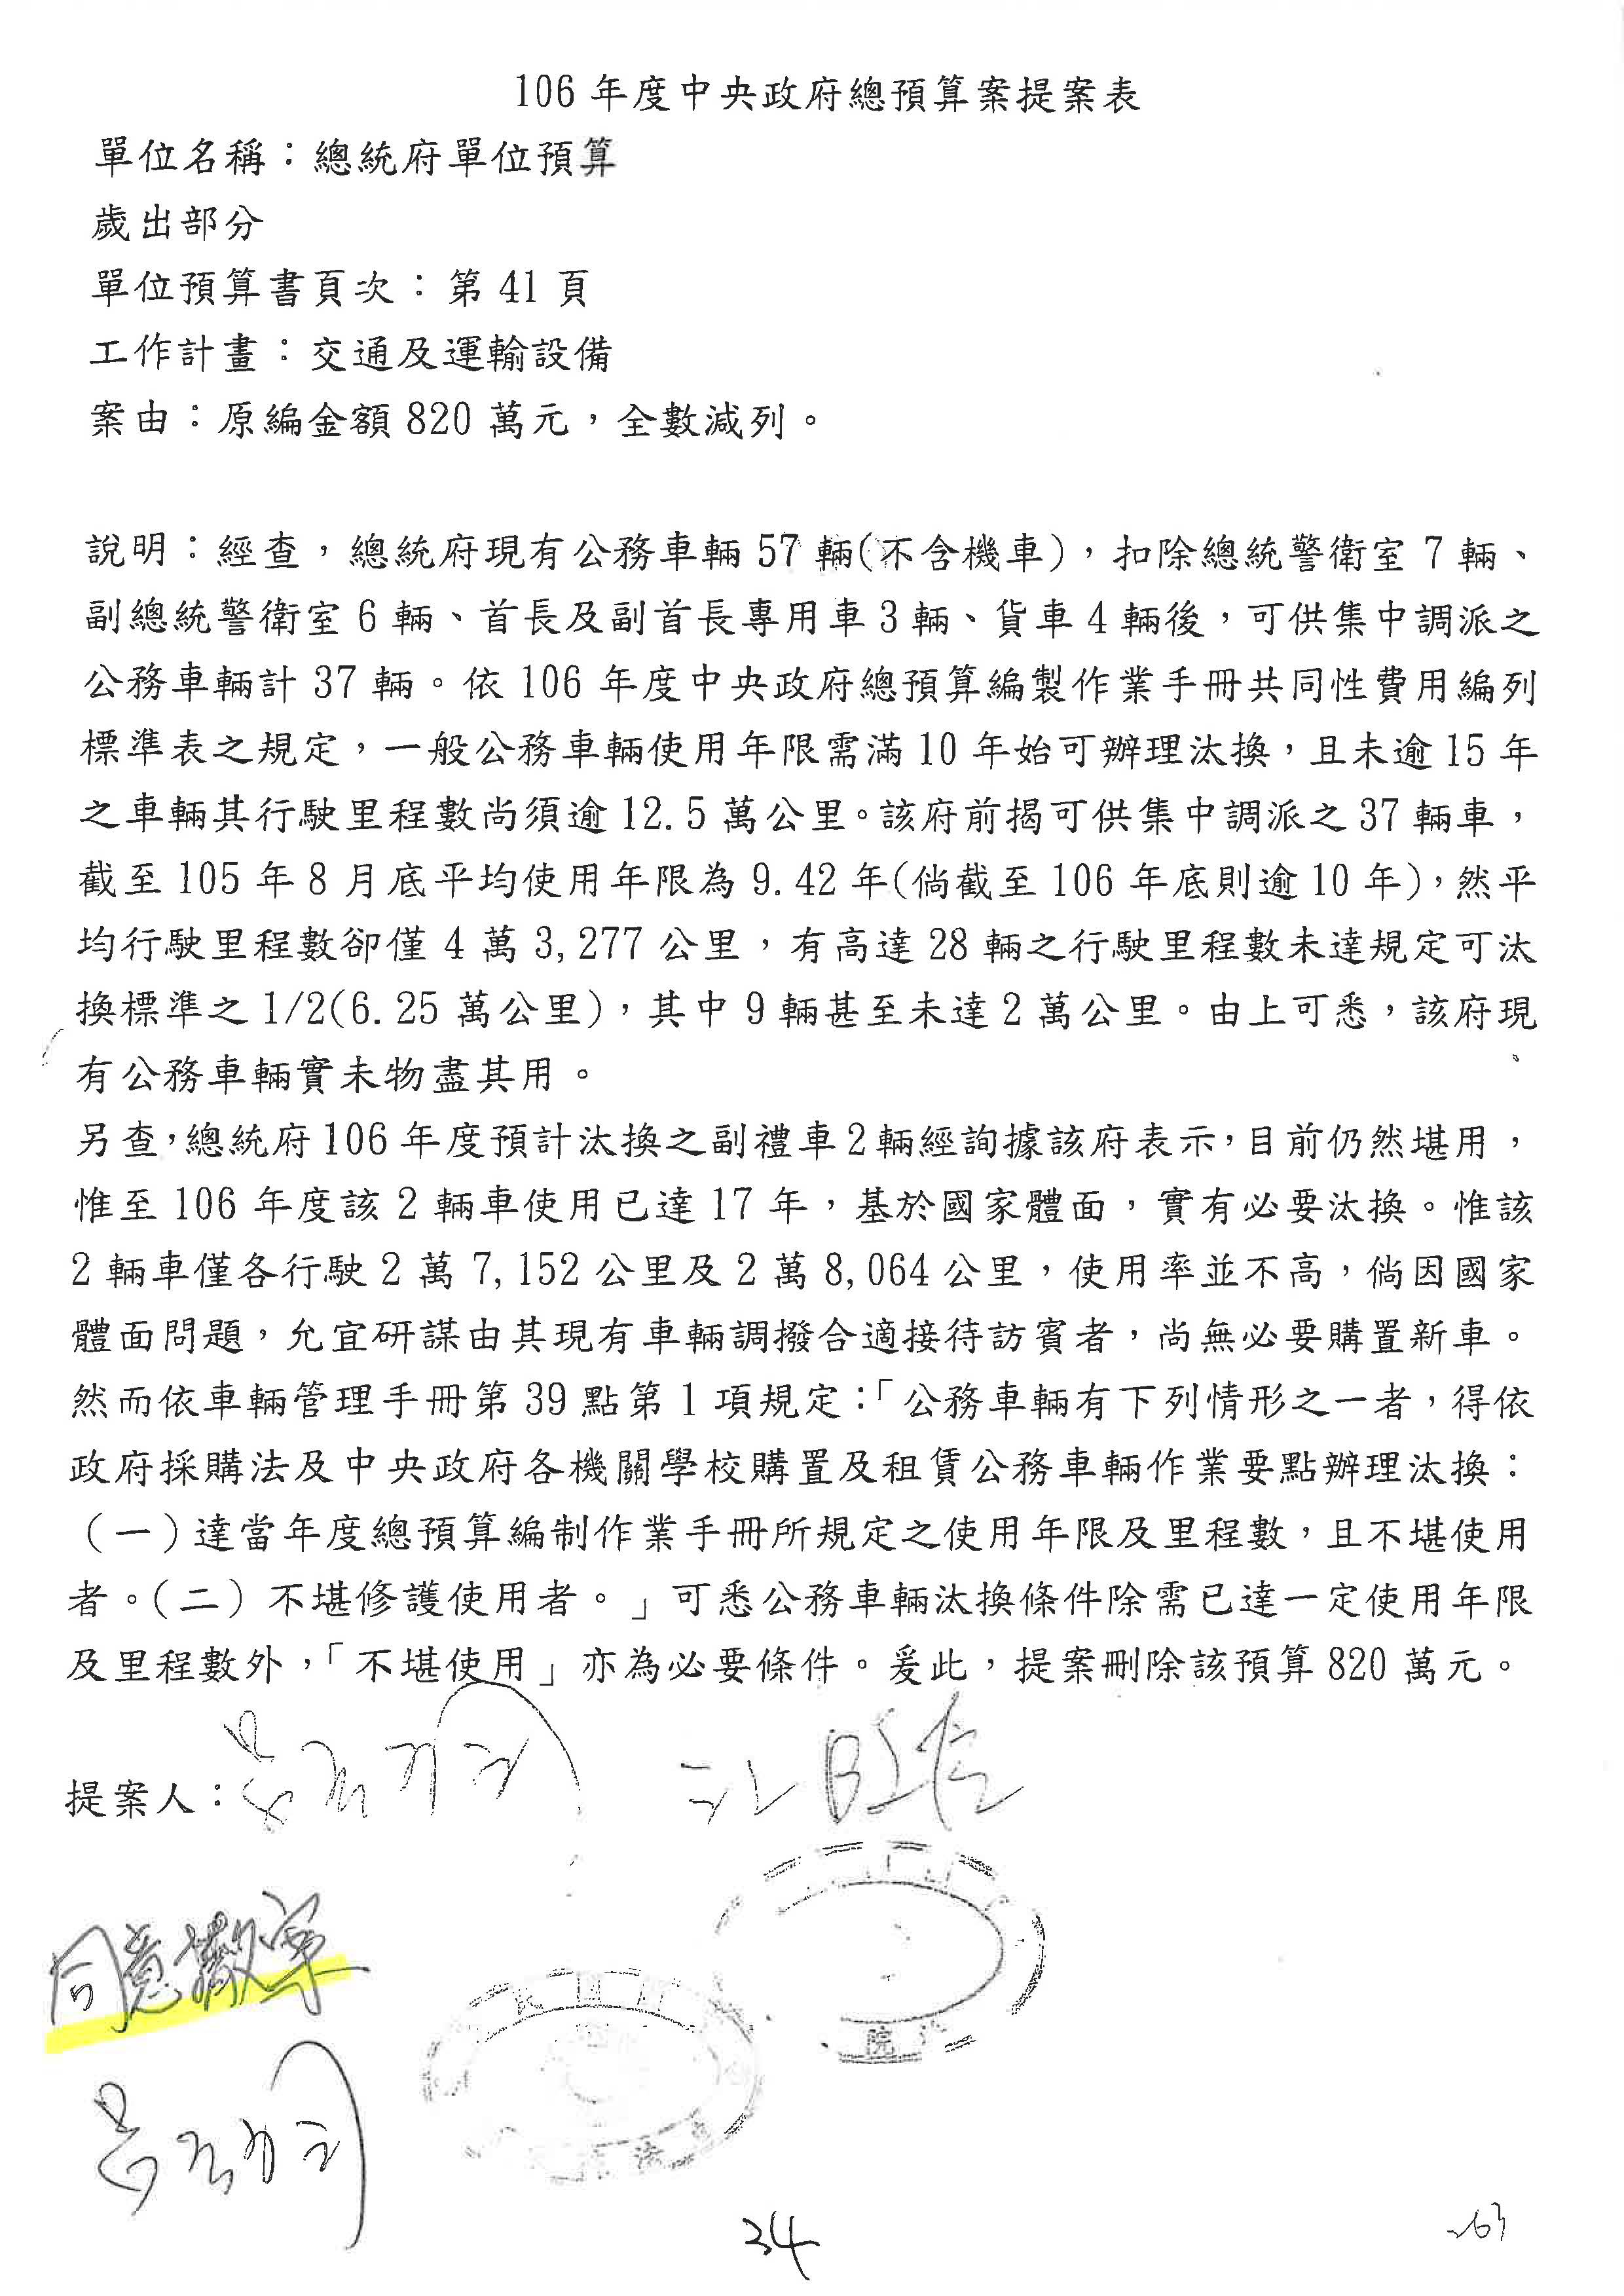 106 年度中央政府總預算案提案表
單位名稱：總統府單位預算
歲出部分
單位預算書頁次：第 41 頁
工作計畫：交通及運輸設備
案由：原編金額 820 萬元，全數減列。
說明：經查，總統府現有公務車輛 57 輛(不含機車)，扣除總統警衛室 7 輛、
副總統警衛室 6 輛、首長及副首長專用車 3 輛、貨車 4 輛後，可供集中調派之
公務車輛計 37 輛。依 106 年度中央政府總預算編製作業手冊共同性費用編列
標準表之規定，一般公務車輛使用年限需滿 10 年始可辦理汰換，且未逾 15 年
之車輛其行駛里程數尚須逾 12.5 萬公里。該府前揭可供集中調派之 37 輛車，
截至 105 年 8 月底平均使用年限為 9.42 年(倘截至 106 年底則逾 10 年)，然平
均行駛里程數卻僅 4 萬 3,277 公里，有高達 28 輛之行駛里程數未達規定可汰
換標準之 1/2(6.25 萬公里)，其中 9 輛甚至未達 2 萬公里。由上可悉，該府現
有公務車輛實未物盡其用。
另查，總統府 106 年度預計汰換之副禮車 2 輛經詢據該府表示，目前仍然堪用，
惟至 106 年度該 2 輛車使用已達 17 年，基於國家體面，實有必要汰換。惟該
2 輛車僅各行駛 2 萬 7,152 公里及 2 萬 8,064 公里，使用率並不高，倘因國家
體面問題，允宜研謀由其現有車輛調撥合適接待訪賓者，尚無必要購置新車。
然而依車輛管理手冊第 39 點第 1 項規定：「公務車輛有下列情形之一者，得依
政府採購法及中央政府各機關學校購置及租賃公務車輛作業要點辦理汰換：
（一）達當年度總預算編制作業手冊所規定之使用年限及里程數，且不堪使用
者。（二）不堪修護使用者。」可悉公務車輛汰換條件除需已達一定使用年限
及里程數外，「不堪使用」亦為必要條件。爰此，提案刪除該預算 820 萬元。
提案人：
同意撤案
院
34
263